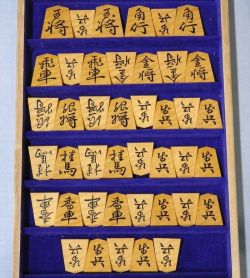 王将 歩兵 玉将 角行 歩兵 角行
飛車 歩兵 飛車 金将 金将 金将 金将
銀将 銀将 銀将 銀将 歩兵 歩兵 歩兵
桂馬 桂馬 桂馬 桂馬 歩兵 歩兵 歩兵
香車 香車 香車 香車 歩兵 歩兵 歩兵
歩兵 歩兵 歩兵 歩兵 歩兵